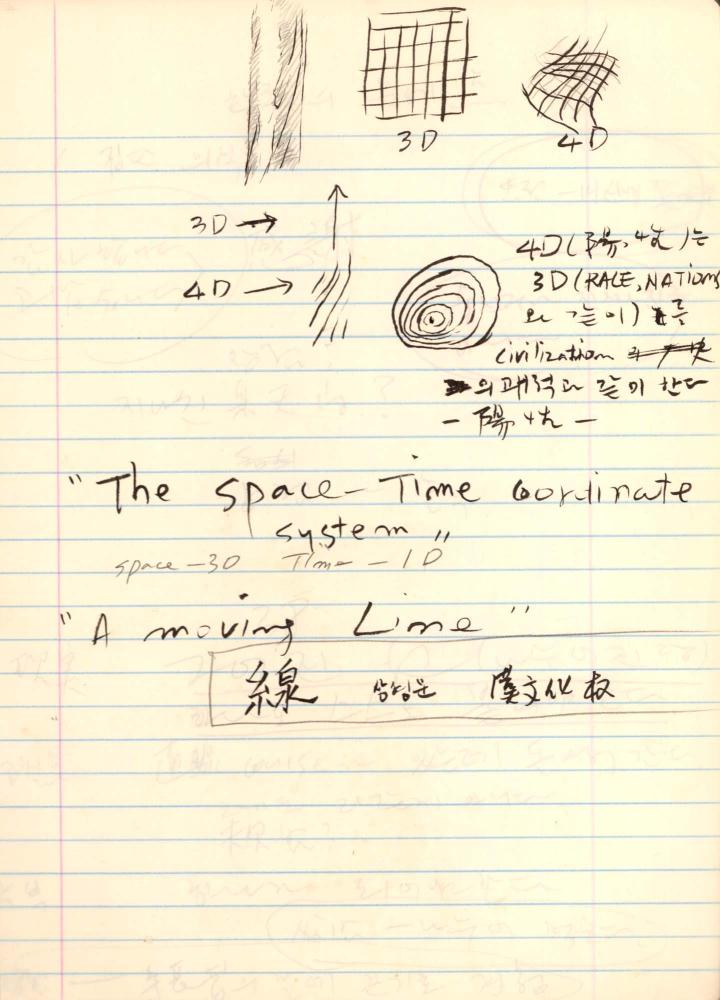 3D
4D
3D →
4D →
4D(陽, )는
3D(RACE, NATIONS
와 같이)를
civilization
의 괘적과 같이 한다
— 陽 —
"The space-Time coordinate
system"
space-3D Time-1D
"A moving Line"
線 상형문 漢文化权